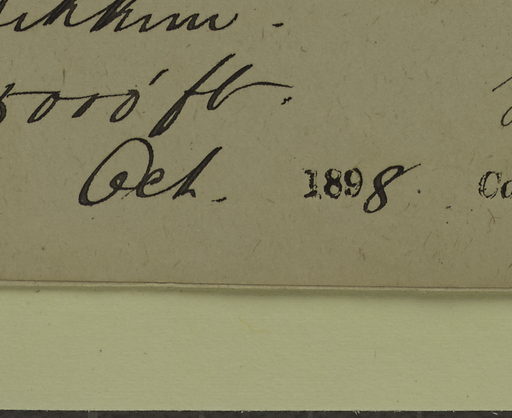 ikkim.
5000 ft.
Oct. 1898 Co